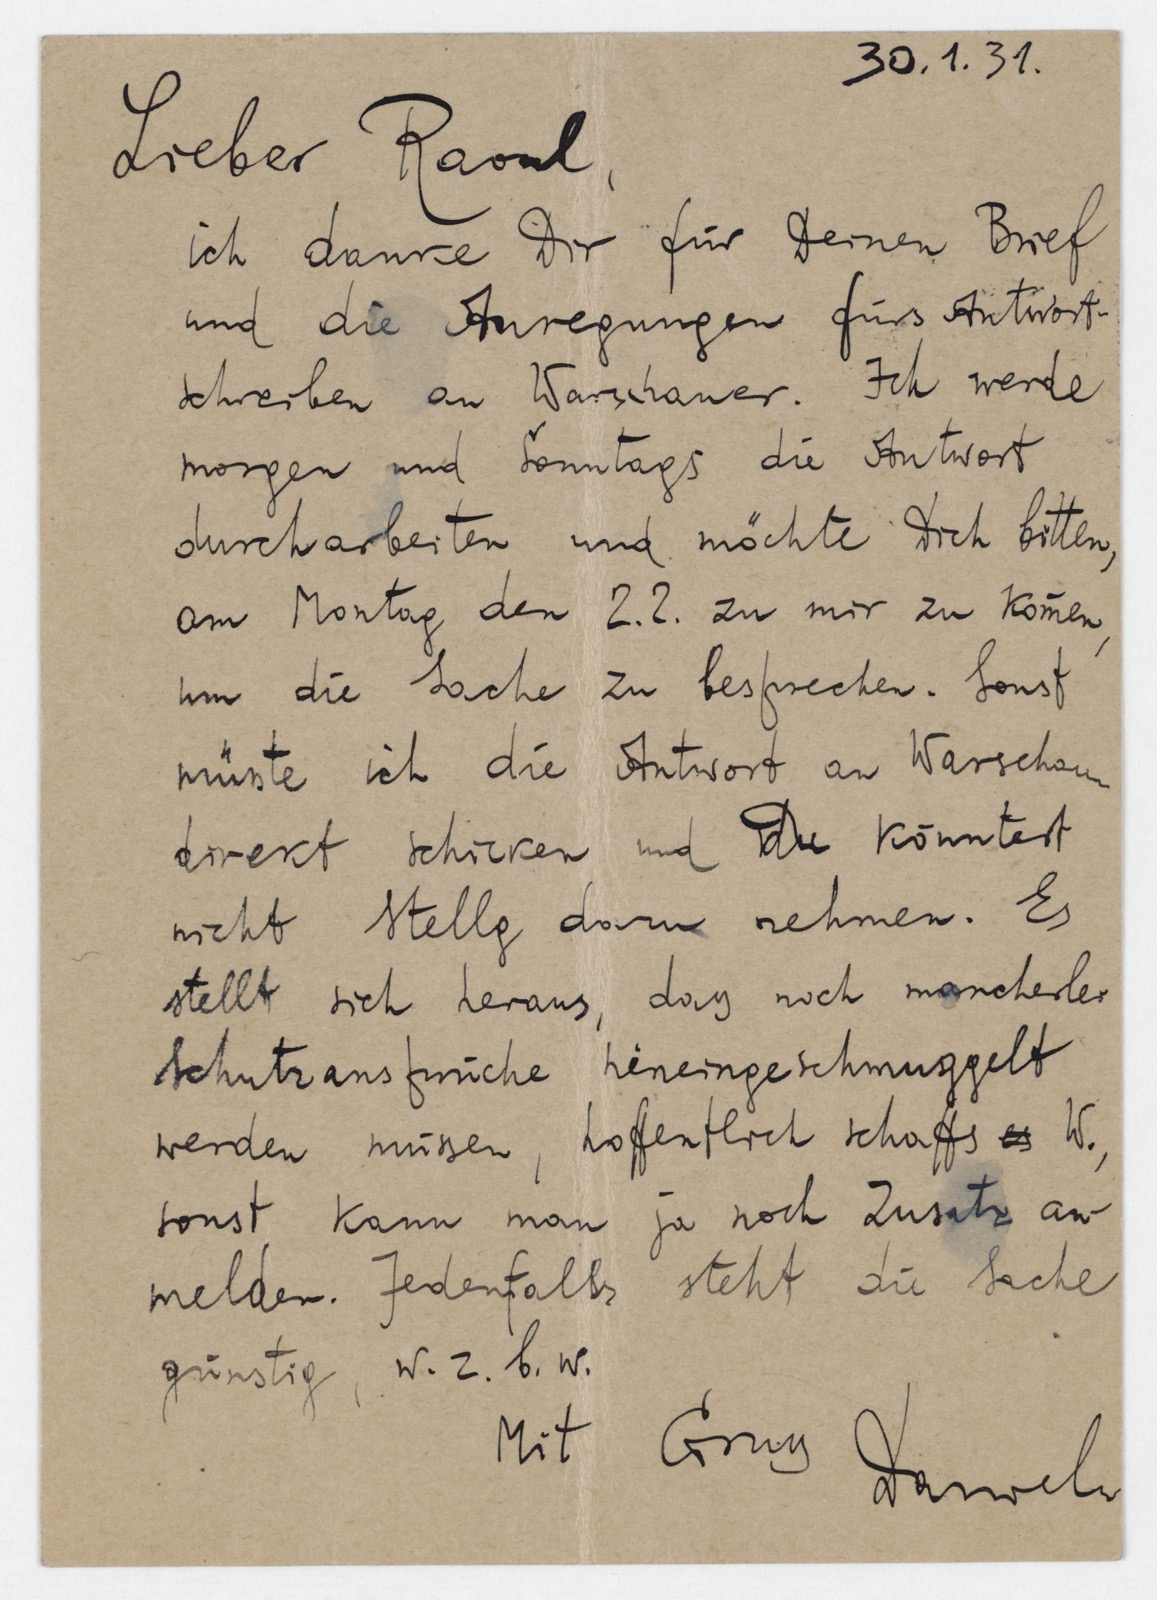 30.1.31.
Lieber Raoul,
ich danke Dir für Deinen Brief
und die Anregungen fürs Antwort-
schreiben an Warschauer. Ich werde
morgen und Sonntags die Antwort
durcharbeiten und möchte Dich bitten,
am Montag den 2.2. zu mir zu kom̄en,
um die Sache zu besprechen. Sonst
müsste ich die Antwort an Warschauer
direkt schicken und Du könntest
nicht Stellg dazu nehmen. Es
stellt sich heraus, daß noch mancherlei
Schutzansprüche hineingeschmuggelt
werden müssen, hoffentlich schaffs es W.,
sonst kann man ja noch Zusatz an
melden. Jedenfalls steht die Sache
günstig, w. z. b. w.
Mit Gruß